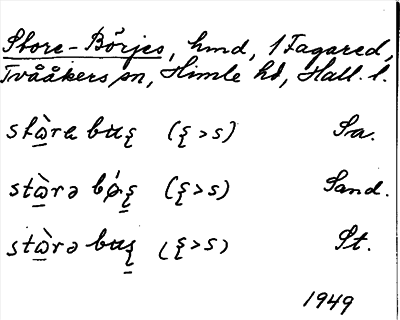 Store-Börjes, hmd, 1 Fagared,
Tvååkers sn, Himle hd, Hall. l.
stòra buʂ (ʂ > s) Sa.
stòrə bǿʂ (ʂ > s) Sand.
stòrə buʂ (ʂ > s) St.
1949